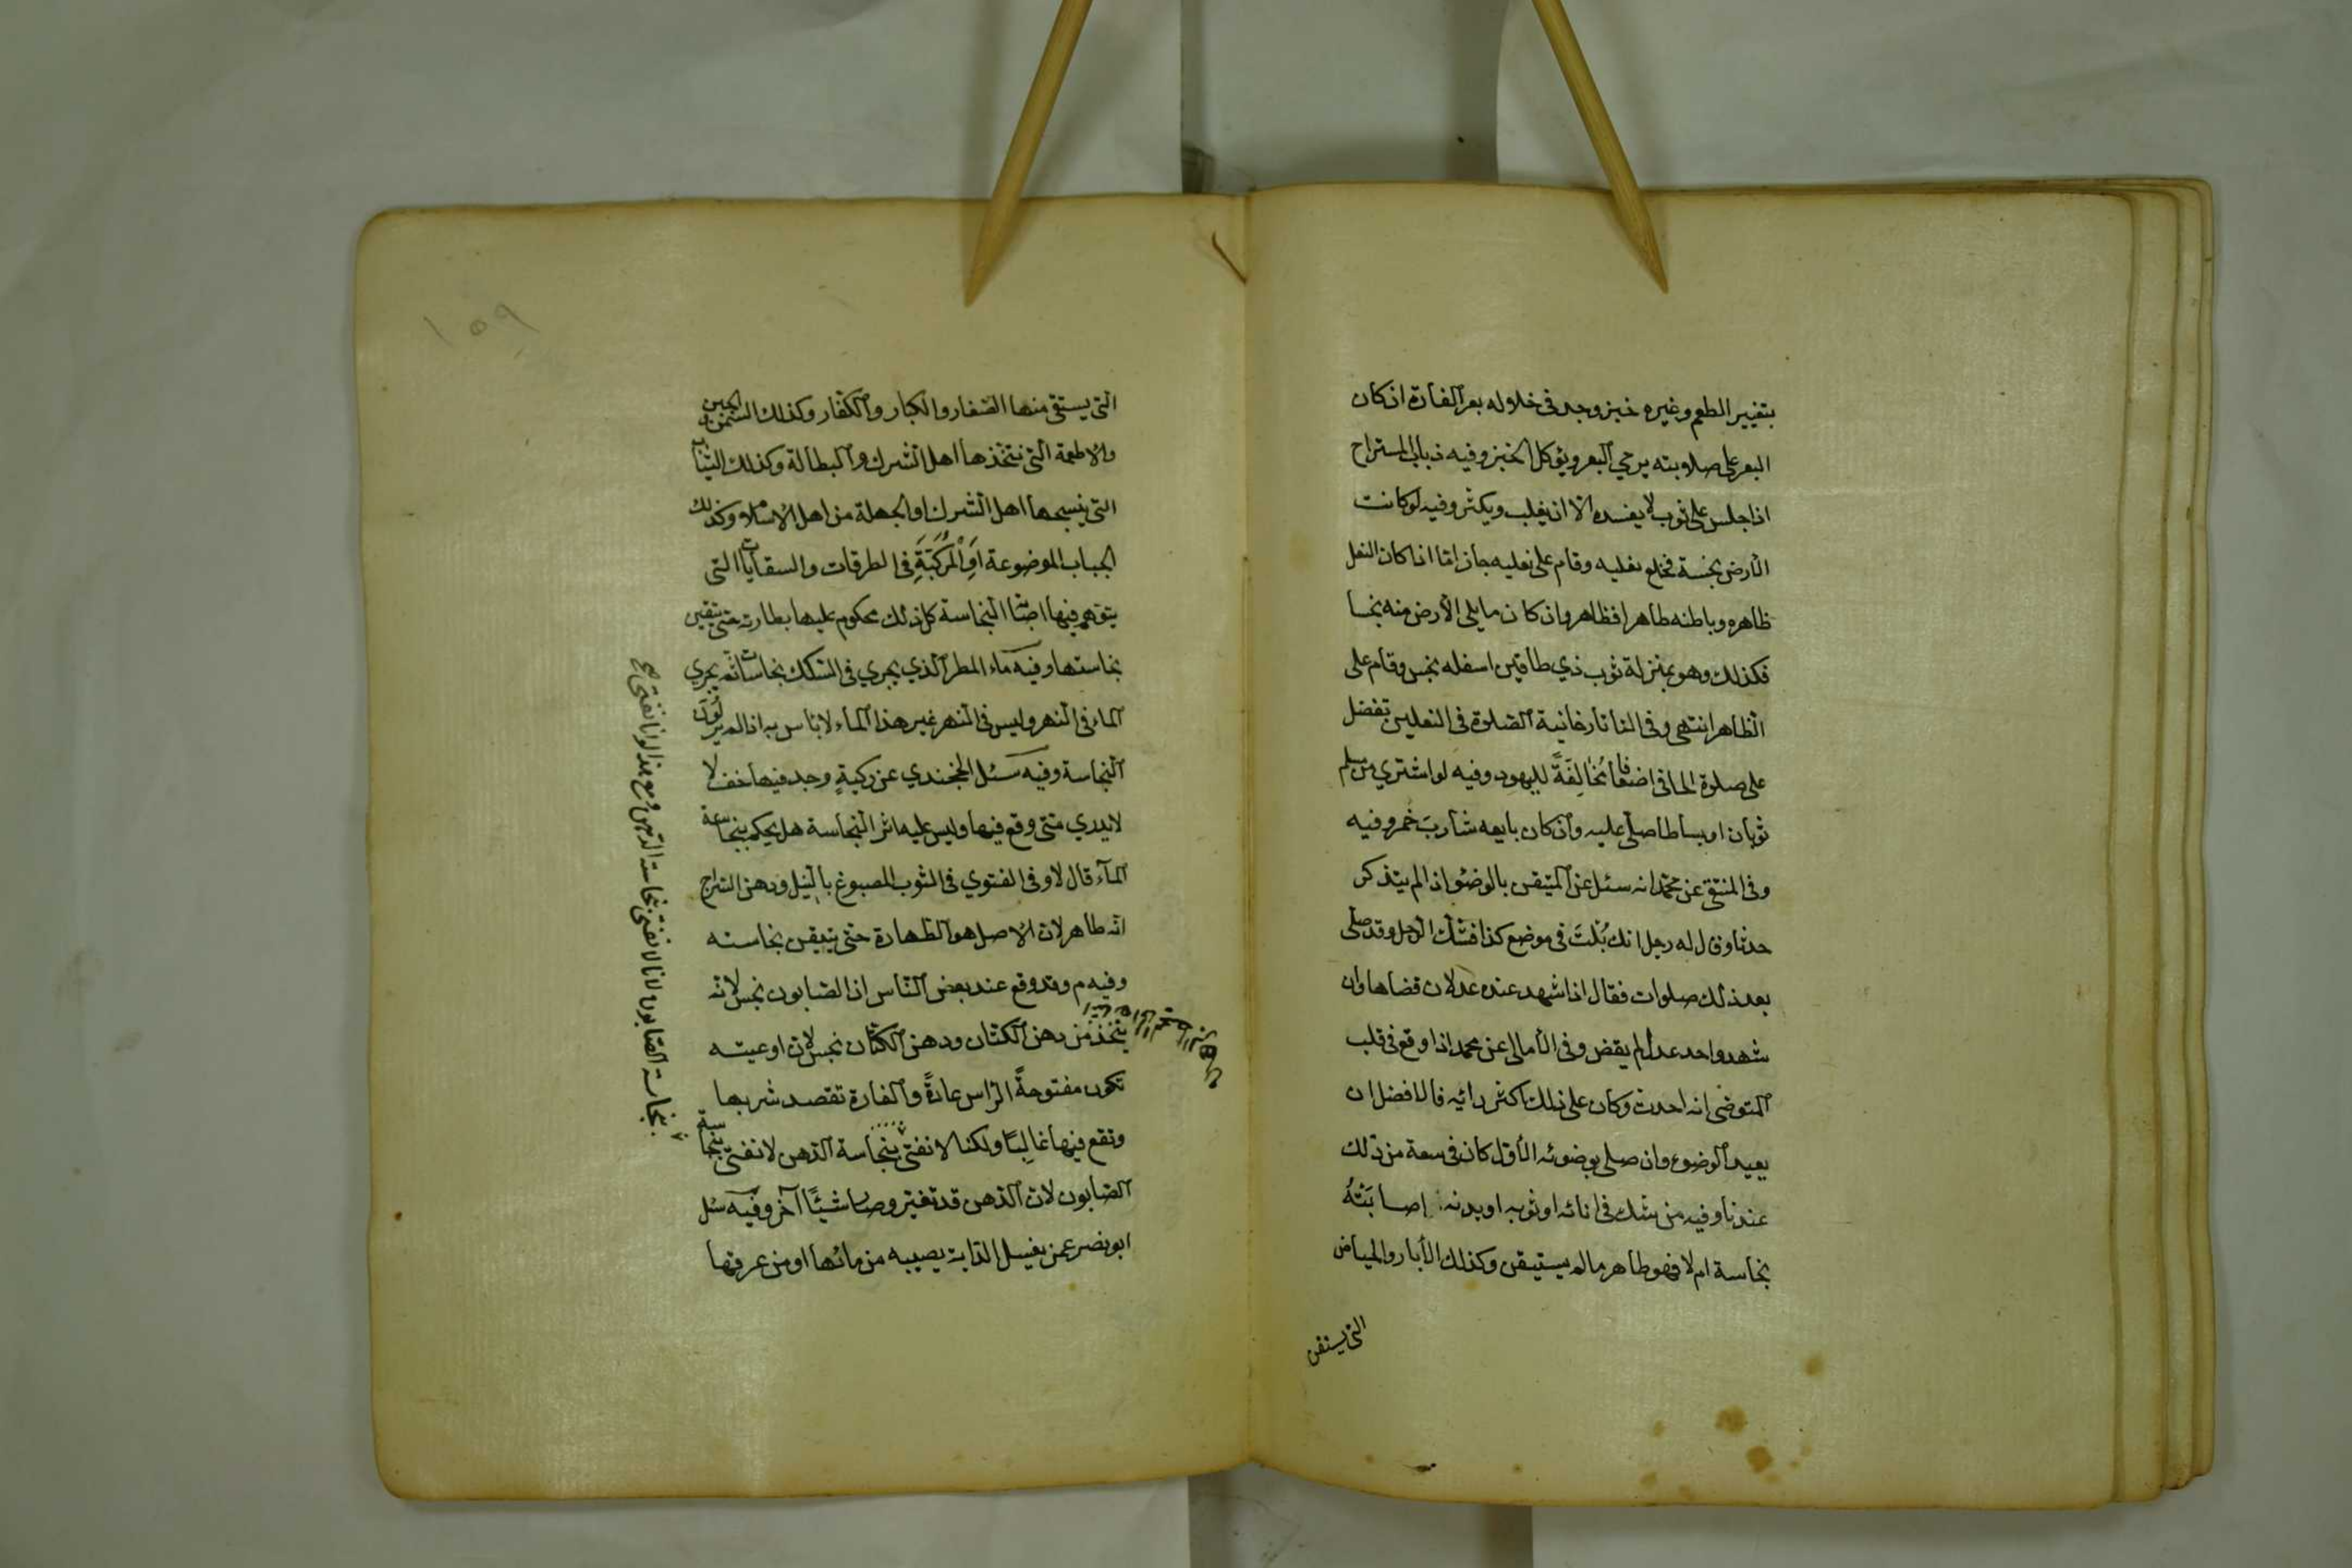 بتغيير الطعم وغيره خبز وجد في خلاله بعر الفارة ان كان
البعر على صلابته يرمي البعر ويؤكل الخبز وفيه ذباب المستراح
اذا جلس على ثوب لا يفسده الا ان يغلب ويكثر وفيه لو كانت
الأرض نجسة فخلع نعليه وقام على نعليه جاز امّا اذا كان النعل
ظاهره وباطنه طاهرا فظاهر وان كان ما يلي الأرض منه نجسا
فكذلك وهو بمنزلة ثوب ذي طاقين اسفله نجس وقام على
الظاهر انتهى وفي التاتارخانية الصلوة في النعلين تفضل
على صلوة الحافي اضعافا مُخَالِفَةً لليهود وفيه لو اشتري من مسلم
ثوبان او بساطا صلّى عليه وان كان بايعه شاربَ خمر وفيه
وفي المنتقى عن محمّد انه سئل عن المتيقن بالوضوء اذا لم يتذكر
حدثا وقال له رجل انك بُلْتَ في موضع كذا فشك الرجل وقد صلّى
بعد ذلك صلوات فقال اذا شهد عنده عدلان قضاها وان
شهد واحد عدل لم يقض وفي الأمالي عن محمد اذا وقع في قلب
المتوضي انه احدث وكان على ذلك اكثر رائيه فالافضل ان
يعيد الوضوء وان صلى بوضوئه الأوّل كان في سعة من ذلك
عندنا وفيه من شك في انائه او ثوبه او بدنه إصابَتْهُ
نجاسة ام لا فهو طاهر ما لم يستيقن وكذلك الأبار والحياض
التي يستقى
١٥٩
التي يستقى منها الصغار والكبار والكفّار وكذلك السمن والجبن
والاطعمة التي تتخذها اهل الشرك والبطالة وكذلك الثياب
التي ينسجها اهل الشرك او الجهلة من اهل الاسلام وكذلك
الجباب الموضوعة اوِ الْمُرَكَّبَةِ في الطرقات والسقايات التي
يتوهم فيها اصابة النجاسة كل ذلك محكوم عليها بطهارته حتى يتيقن
نجاستها وفيه ماء المطر الذي يجري في السكك نجاسات ثم يجري
الماء في النهر وليس في النهر غير هذا الماء لا بأس به اذا لم ير لون
النجاسة وفيه سئل الخجندي عن ركيةٍ وجد فيها خف لا
لا يدري متى وقع فيها وليس عليه اثر النجاسة هل يحكم بنجاسة
المآء قال لا وفي الفتوي في الثوب المصبوغ بالنيل ودهن السراج
انه طاهر لان الاصل هو الطهارة حتى يتيقن نجاسته
وفيه م وقد وقع عند بعض النّاس ان الصابون نجس لانه
يتخذ من دهن الكتان ودهن الكتان نجس لان اوعيته
تكون مفتوحةً الرّاس عادةً والفارة تقصد شربها
وتقع فيها غالبًا ولكنا لا نفتي بنجاسة الدهن لا نفتي بنجاسة
الصابون لان الدهن قد تغير وصار شيئًا آخر وفيه سئل
ابو نصر عمن يغسل الدابة يصيبه من مائها او من عرقها
بنجاسة الصابون لانا لا نفتي بنجاسة الدهن ومع هذا لو انا نفتي صح